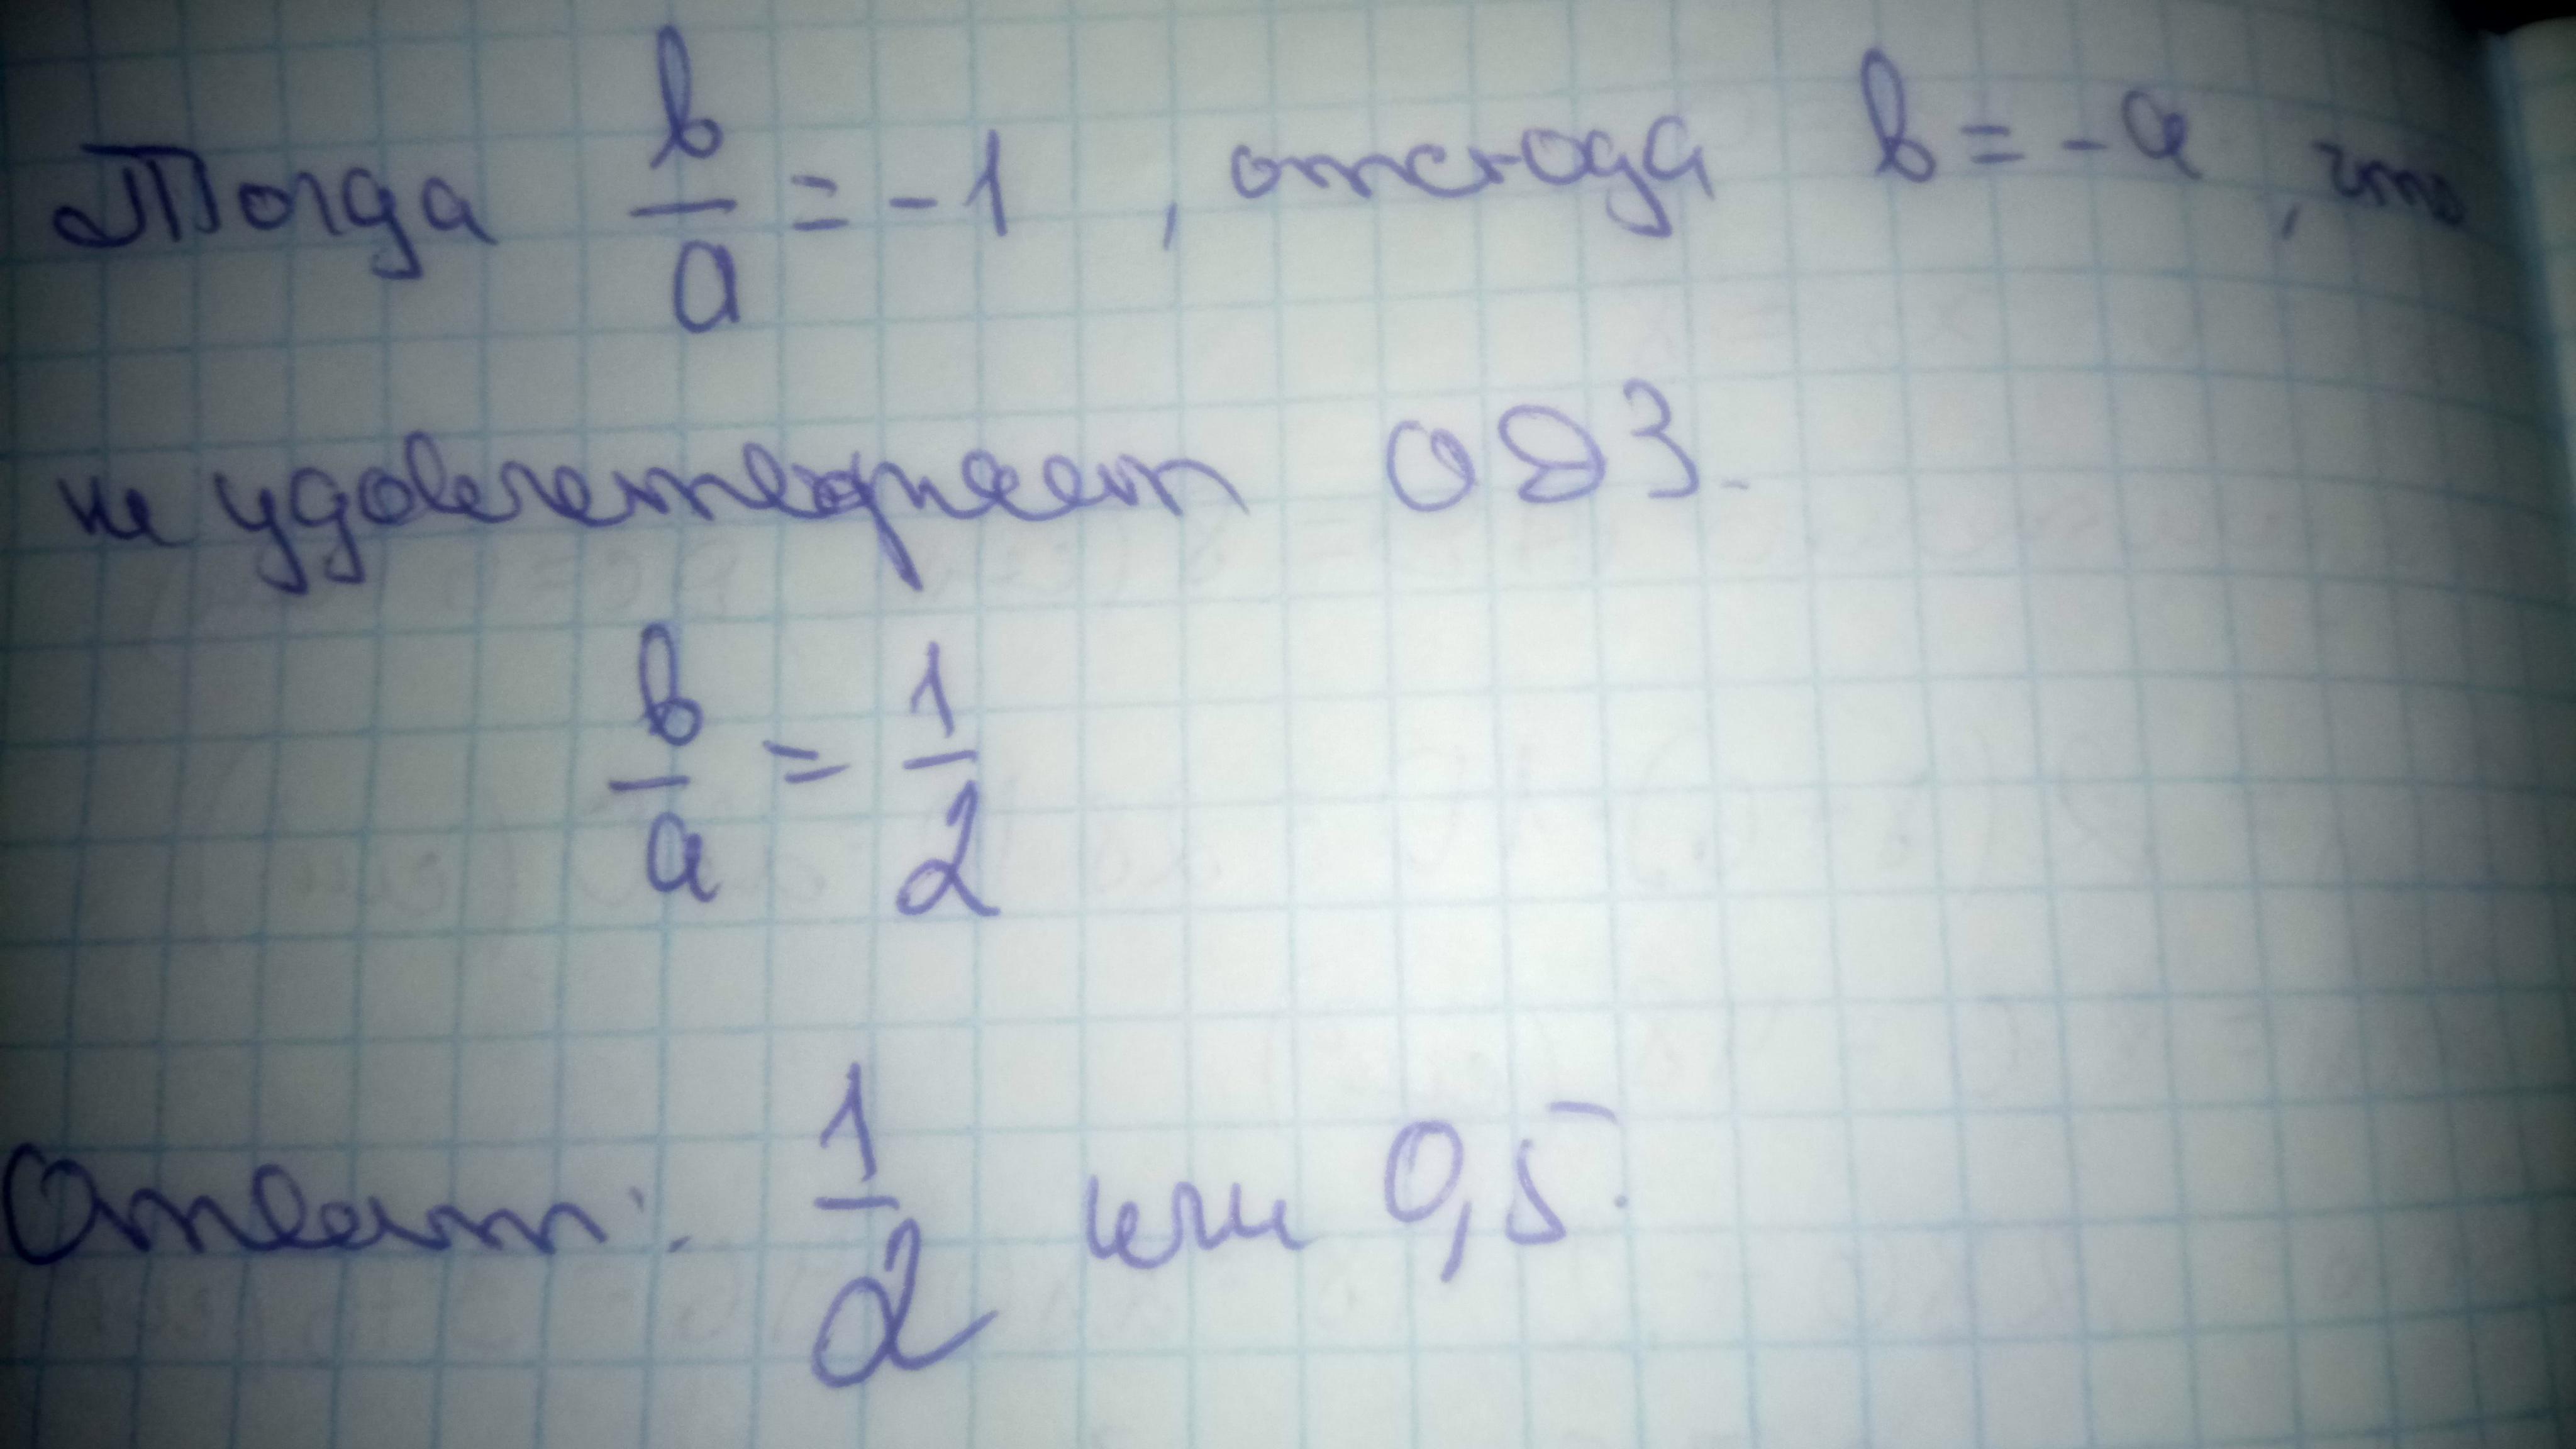 Тогда b/a = -1, отсюда b = -a, что
не удовлетворяет ОДЗ.
b/a = 1/2
Ответ: 1/2 или 0,5.